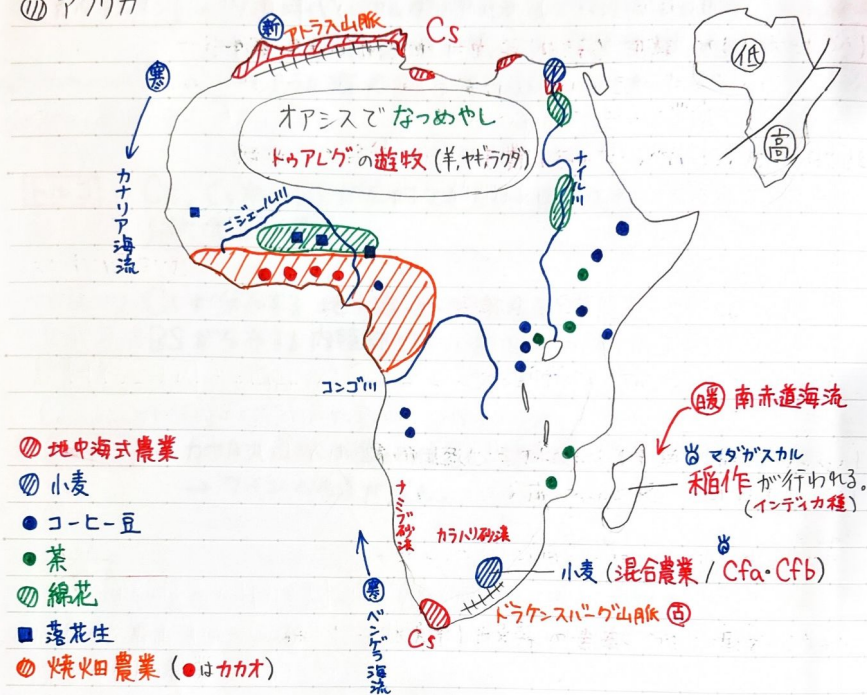 アフリカ
新 アトラス山脈
Cs
寒
カナリア海流
オアシスで なつめやし
トゥアレグの遊牧 (羊,ヤギ,ラクダ)
ナイル川
低
高
ニジェール川
コンゴ川
暖 南赤道海流
マダガスカル
稲作が行われる。
(インディカ種)
ナミブ砂漠
カラハリ砂漠
小麦 (混合農業 / Cfa・Cfb)
ドラケンスバーグ山脈 古
Cs
寒 ベンゲラ海流
地中海式農業
小麦
コーヒー豆
茶
綿花
落花生
焼畑農業 (●はカカオ)